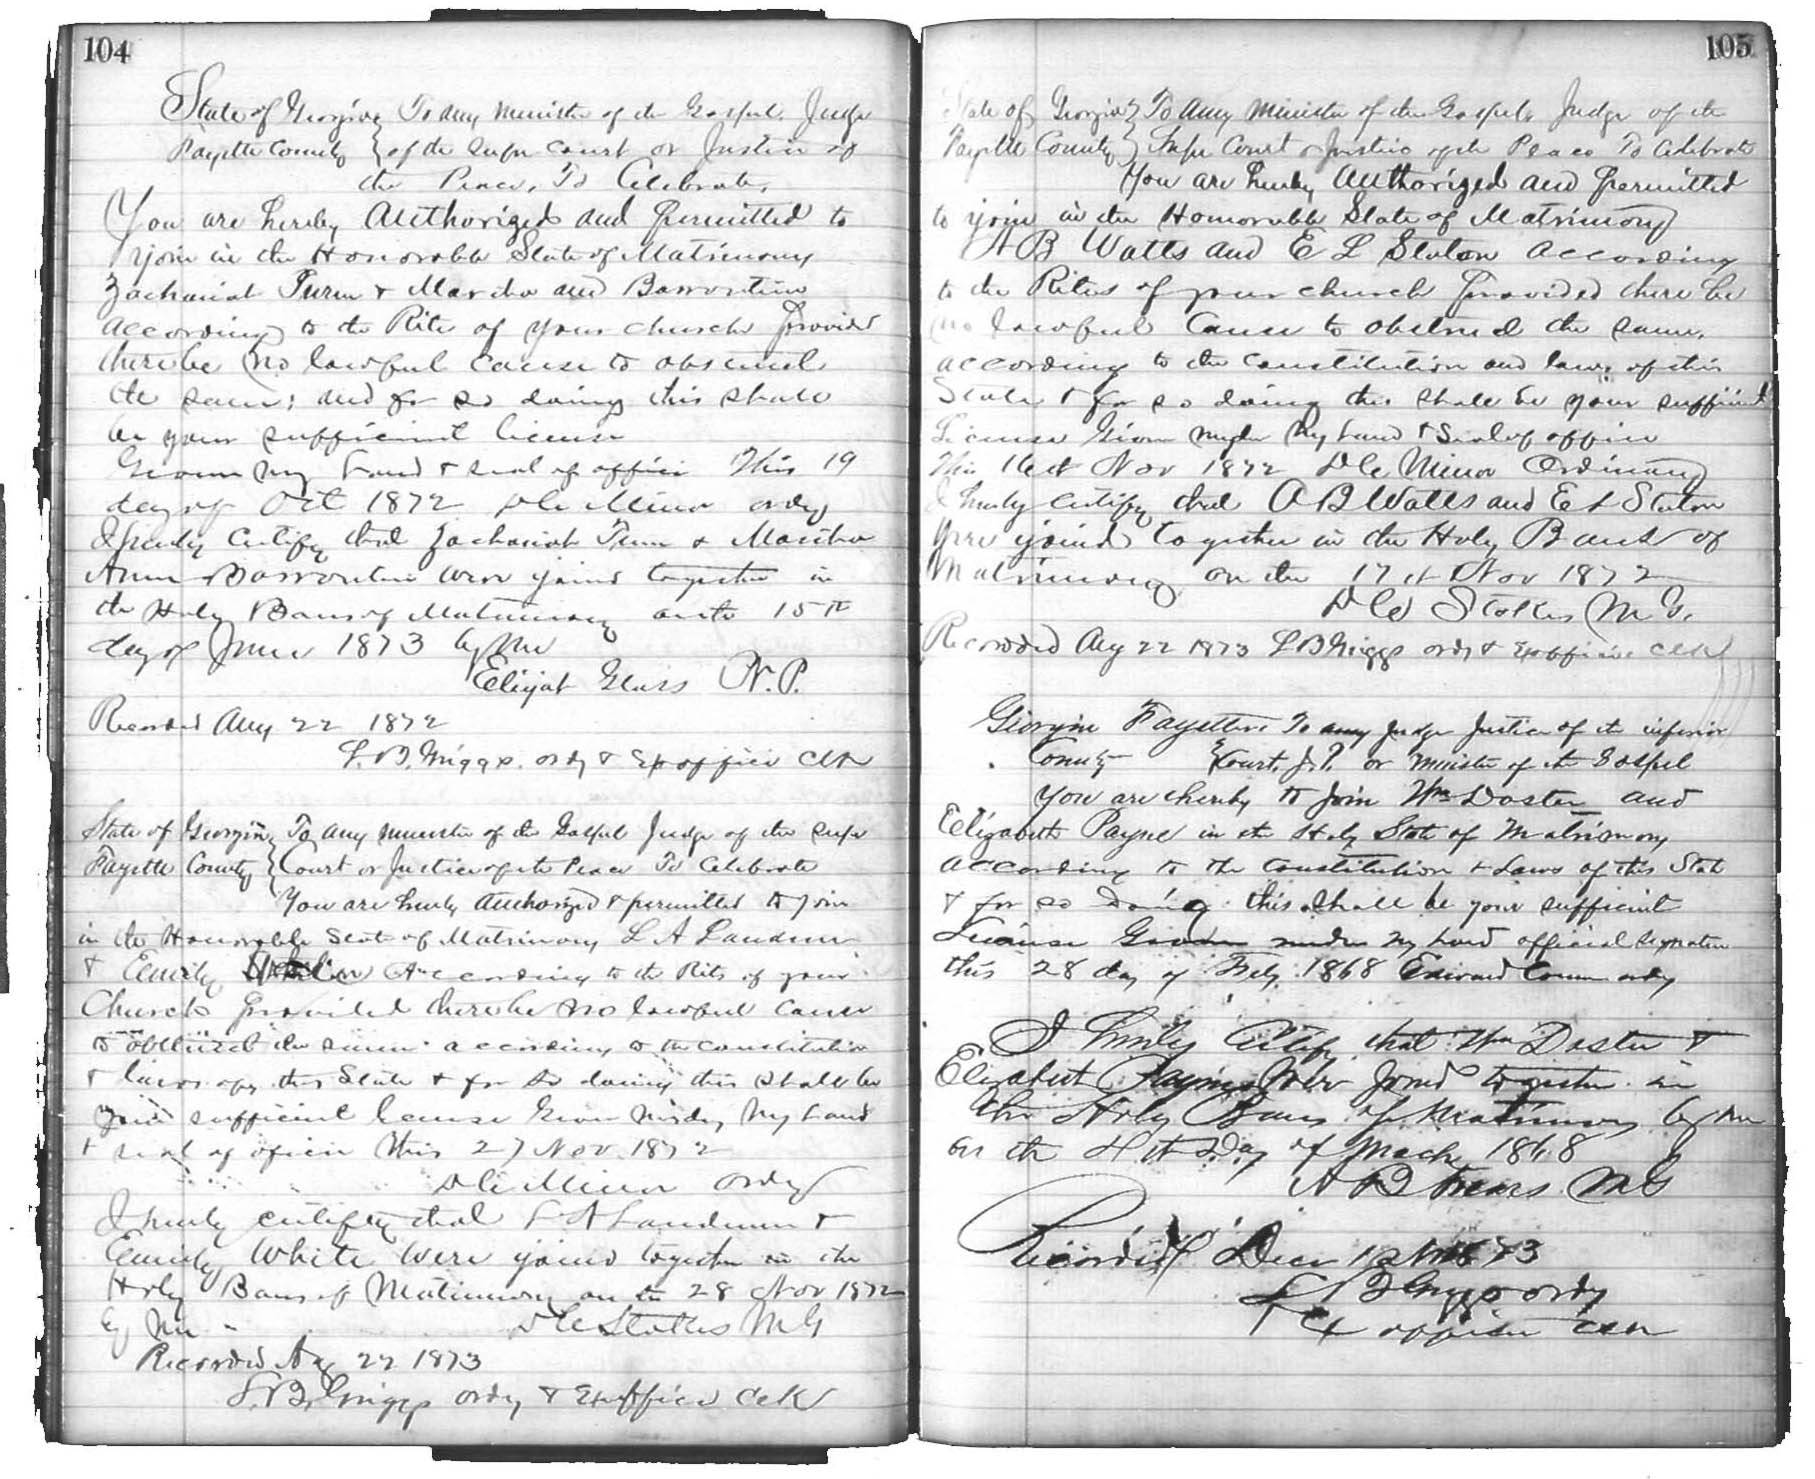 104
State of Georgia } To any Minister of the Gospel, Judge
Fayette County } of the Supr Court or Justice of
the Peace, To Celebrate,
You are hereby Authorized and permitted to
join in the Honorable State of Matrimony
Zachariah & Martha and
according to the Rite of your church provided
there be no lawful cause to obstruct
the same; and for so doing this shall
be your sufficient license
Given my hand & seal of office This 19
day of Oct 1872 Minor ordy
I hereby certify that Zachariah & Martha
Ann were joined together in
the Holy Bans of Matrimony on the 15th
day of June 1873 by me
Elijah Glass N.P.
Recorded Aug 22 1872
L.B. Griggs. ordy & Exofficio Clk
State of Georgia } To any minister of the Gospel Judge of the Supr
Fayette County } Court or Justice of the Peace To Celebrate
You are hereby Authorized & permitted to join
in the Honorable State of Matrimony L A Landrum
& Emily According to the Rits of your
Church provided there be no lawful cause
to obstruct the same according to the constitution
& laws of this State & for so doing this shall be
your sufficient license Given under My hand
& seal of office this 27 Nov 1872
Minor ordy
I hereby certify that L A Landrum &
Emily White were joined together in the
Holy Bans of Matrimony on the 28 Nov 1872
by me - Stokes M G
Recorded Aug 22 1873
L.B. Griggs ordy & Exofficio Clk
105
State of Georgia } To any Minister of the Gospel, Judge of the
Fayette County } Supr Court or Justice of the Peace To Celebrate
You are hereby authorized and permitted
to join in the Honorable State of Matrimony
A B Watts and E L Staton according
to the Rites of your church provided there be
no lawful cause to obstruct the same.
according to the constitution and laws of this
State & for so doing this shall be your sufficient
License Given under My hand & Seal of office
This 16th Nov 1872 Minor Ordinary
I hereby certify that A B Watts and E L Staton
were joined together in the Holy Bands of
Matrimony on the 17th Nov 1872
Stokes M.G.
Recorded Aug 22 1873 L B Griggs ordy & Exofficio Clk
Georgia Fayette To any Judge Justice of the inferior
County } Court, J.P. or Minister of the Gospel
You are hereby to join Wm Doster and
Elizabeth Payne in the Holy State of Matrimony
according to the constitution & Laws of this State
& for so doing this shall be your sufficient
License Given under my hand official signature
this 28 day of Feby. 1868 Edward Conner ordy
I hereby Certify that Wm Doster &
Elizabeth Payne Were Joined together in
the Holy Bans of Matrimony by me
on the 4th Day of March 1868
A B M G
Recorded Dec 1873
L B Griggs ordy
& Ex officio Clk